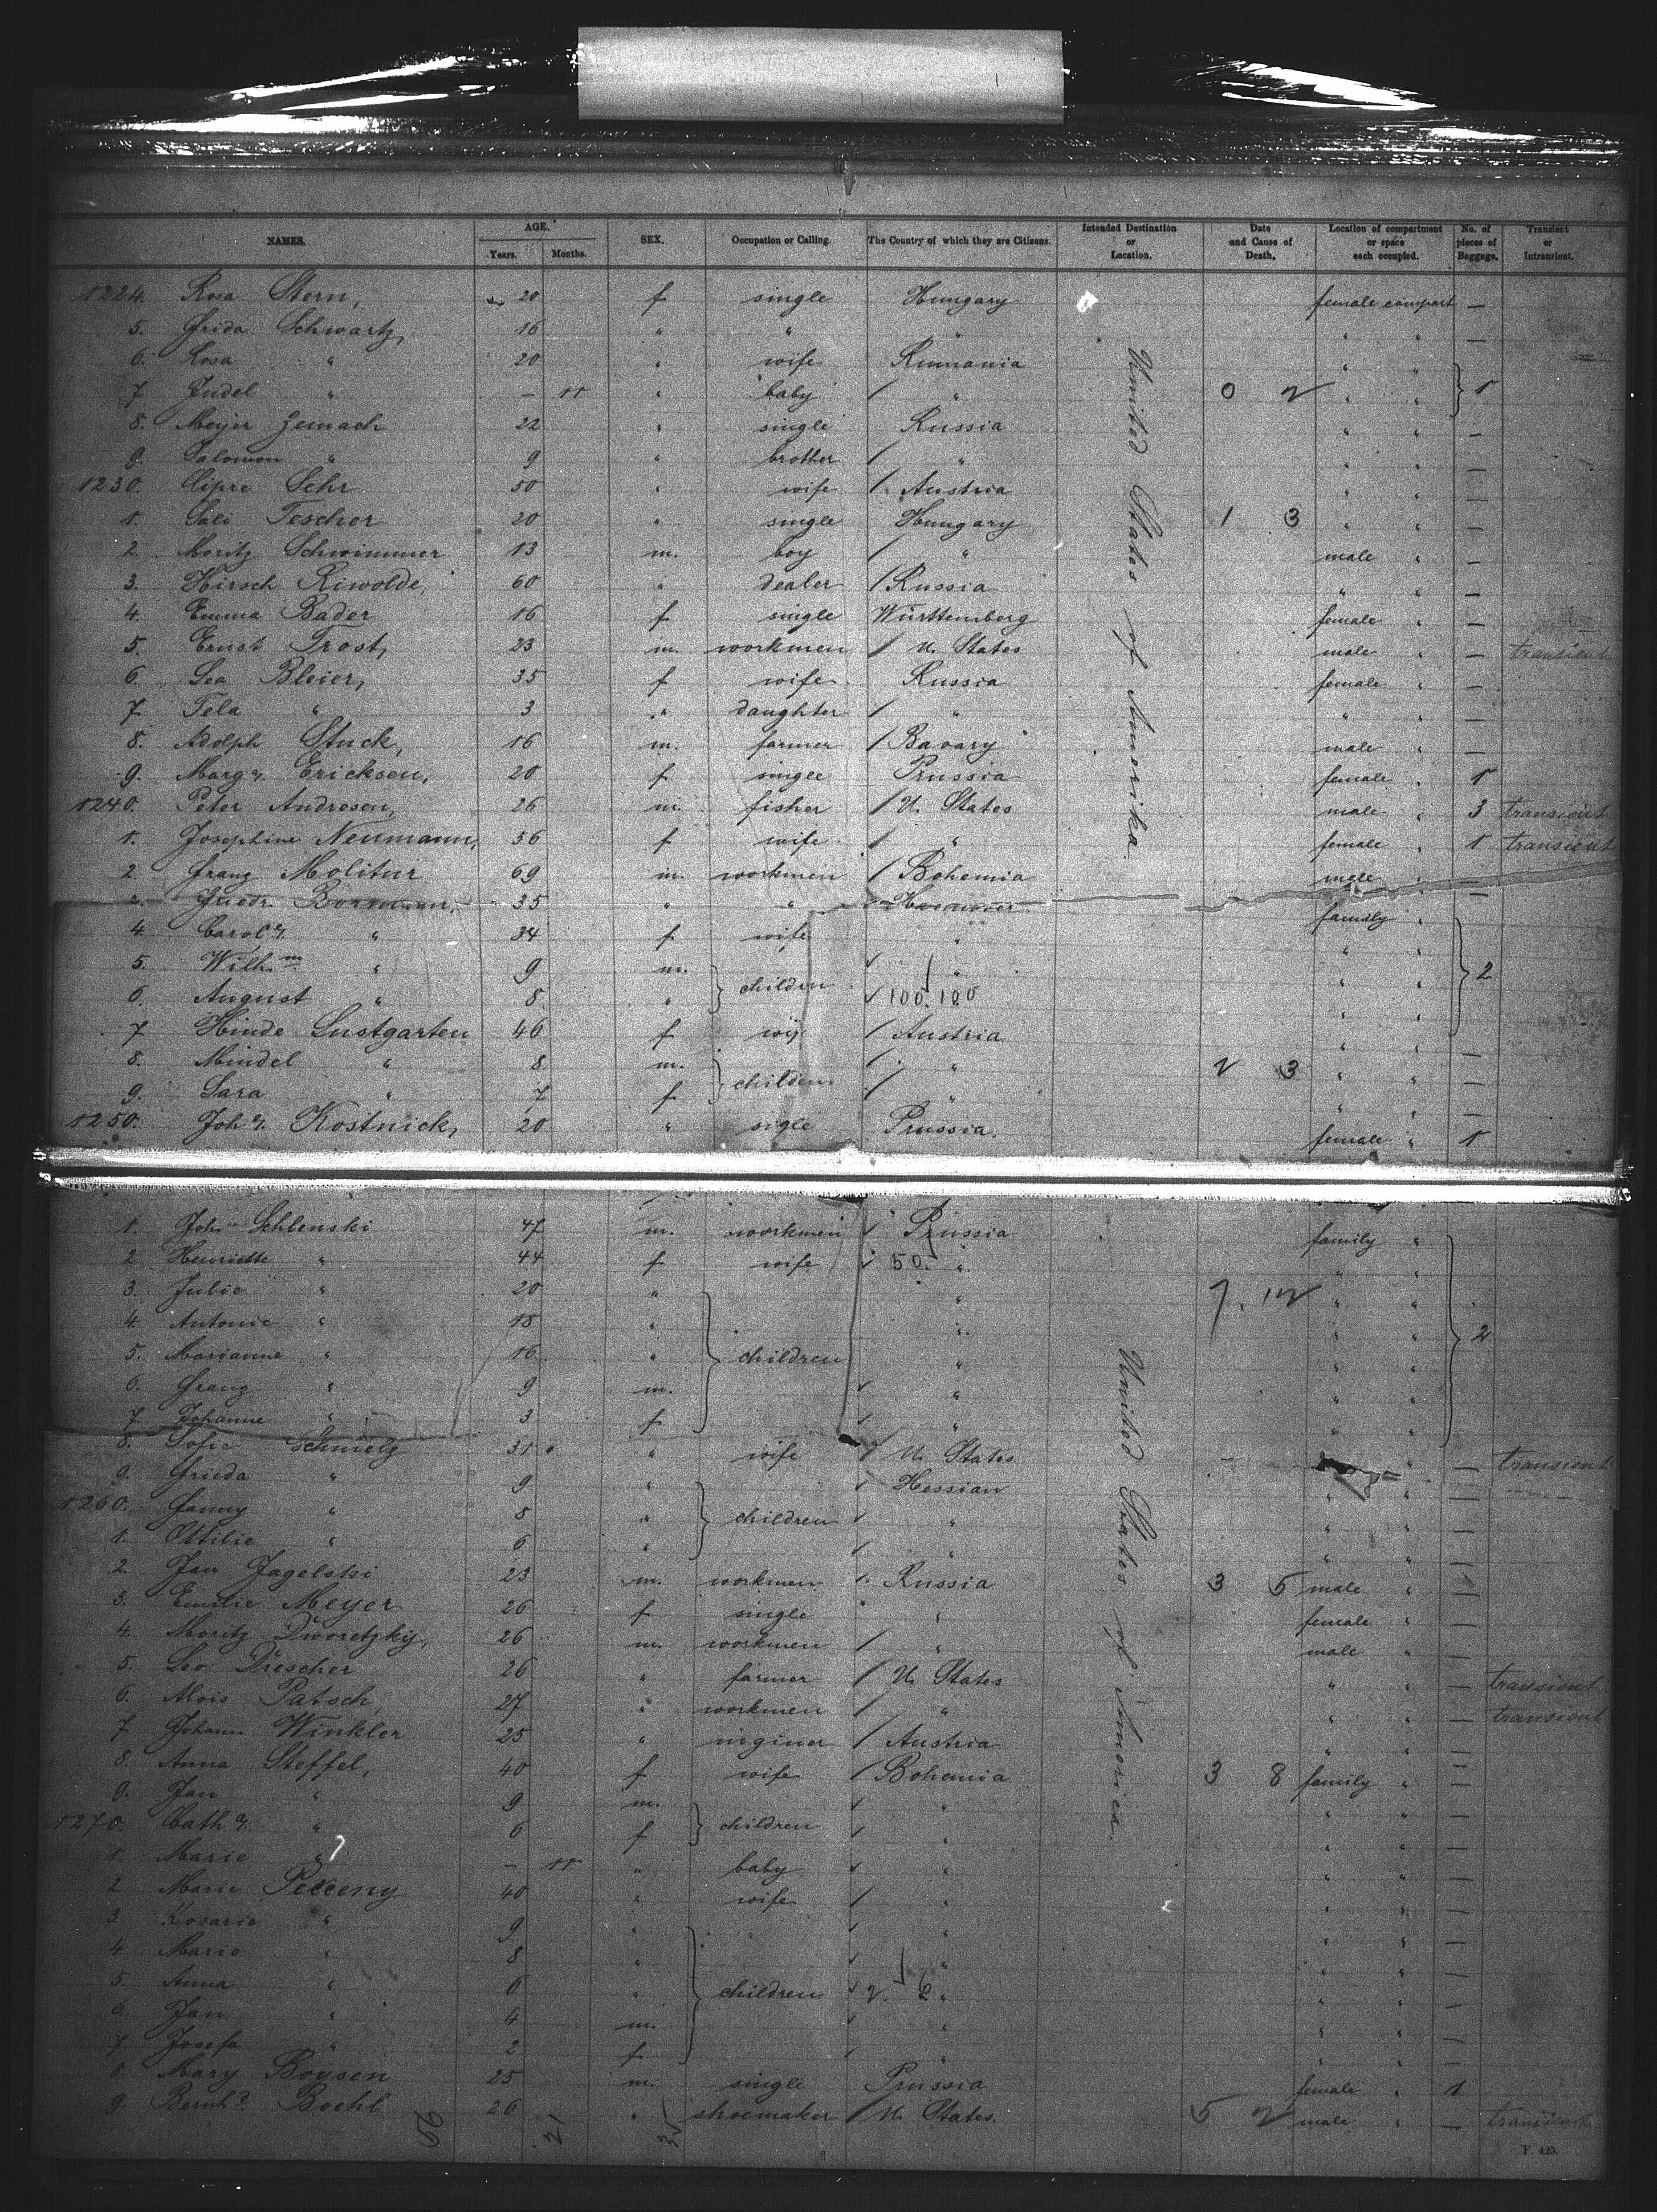 NAMES. AGE. Years. Months. SEX. Occupation or Calling. The Country of which they are Citizens. Intended Destination or Location. Date and Cause of Death. Location of compartment or space each occupied. No. of pieces of Baggage. Transient or Intransient.
1224. Rosa Stern, 20 f single Hungary female compart —
5. Frida Schwartz, 16 " " " " " —
6. Rosa " 20 " wife Rumania " "
7 Judel " — 11 " baby / " 0 2 " " } 1
8. Meyer Zemach 22 " single Russia " " —
9. Salomon " 9 " brother / " " " —
1230. Cipre Sehr 50 " wife / Austria " " —
1. Sali Tescher 20 " single Hungary 1 3 " " —
2. Moritz Schwimmer 13 m. boy / " male " —
3. Hirsch Riwolde, 60 " dealer / Russia " " —
4. Emma Bader 16 f single Württemberg female " —
5. Ernst Trost, 23 m. workmen / U. States male " — transient
6. Lea Bleier, 35 f wife Russia female " —
7 Tela " 3 " daughter / " " " —
8. Adolph Stuck, 16 m. farmer / Bavary male " —
9. Marg a. Erickson, 20 f single Prussia female " 1
1240. Peter Andresen, 26 m. fisher / U. States male " 3 transient
1. Josephine Neumann, 56 f wife / " female " 1 transient
2. Franz Molitur 69 m. workmen / Bohemia male " —
Friedr. Bormann, 35 " " Hannover family "
4. Carol a. " 34 f wife " " "
5. Wilhm " 9 m. ✓ " " " } 2
6. August " 8 " } children ✓ 100. 100 " "
7 Hinde Lustgarten 46 f / Austria " " —
8. Mindel " 8 m. / " 2 3 " " —
9. Sara " 7 f } children / " " " —
1250. Joh a. Kostnick, 20 " sigle Prussia. female " 1
1. Joh Schlenski 47 m. workmen ✓ Prussia family "
2 Henriette " 44 f wife ✓ 50. " " "
3. Julie " 20 " " 7. 12 " "
4. Antonie " 18 " " " " } 2
5. Marianne " 16 " } children " " "
6. Franz " 9 m. ✓ " " "
7 Johanne " 3 f ✓ " " "
8. Sofie Schmelz 31 " wife / U. States " — transient
9. Frieda " 9 " ✓ Hessian " " —
1260. Fanny " 8 " } children ✓ " " " —
1. Ottilie " 6 " ✓ " " " —
2. Jan Jagelski 23 m. workmen / Russia 3 5 male " —
3. Emilie Meyer 26 f single " female "
4. Moritz Dworetzky, 26 m. workmen / " male "
5. Leo Drescher 26 " farmer / U. States " " — transient
6. Alois Patsch, 27 " workmen / " " " — transient
7 Johann Winkler 25 " inginer / Austria " " —
8. Anna Steffel, 40 f wife / Bohemia 3 8 family " —
9. Jan " 9 m. ✓ " " " —
1270. Cath a. " 6 f } children ✓ " " " —
1. Marie " — 11 " baby ✓ " " " —
2 Marie Peceny 40 " wife / " " " —
3. Rosarie " 9 " ✓ " " " —
4. Marie " 8 " ✓ " " " —
5. Anna " 6 " } children ✓ 2. " " " —
6. Jan " 4 m. ✓ " " " —
7. Josefa " 2 f ✓ " " " —
8. Mary Boysen 25 m. single Prussia female " 1
9. Bernhd. Boehl 26 " shoemaker / U. States. 5 2 male " — transient
United States of Amerika.
United States of America.
56 21 35
F. 425.